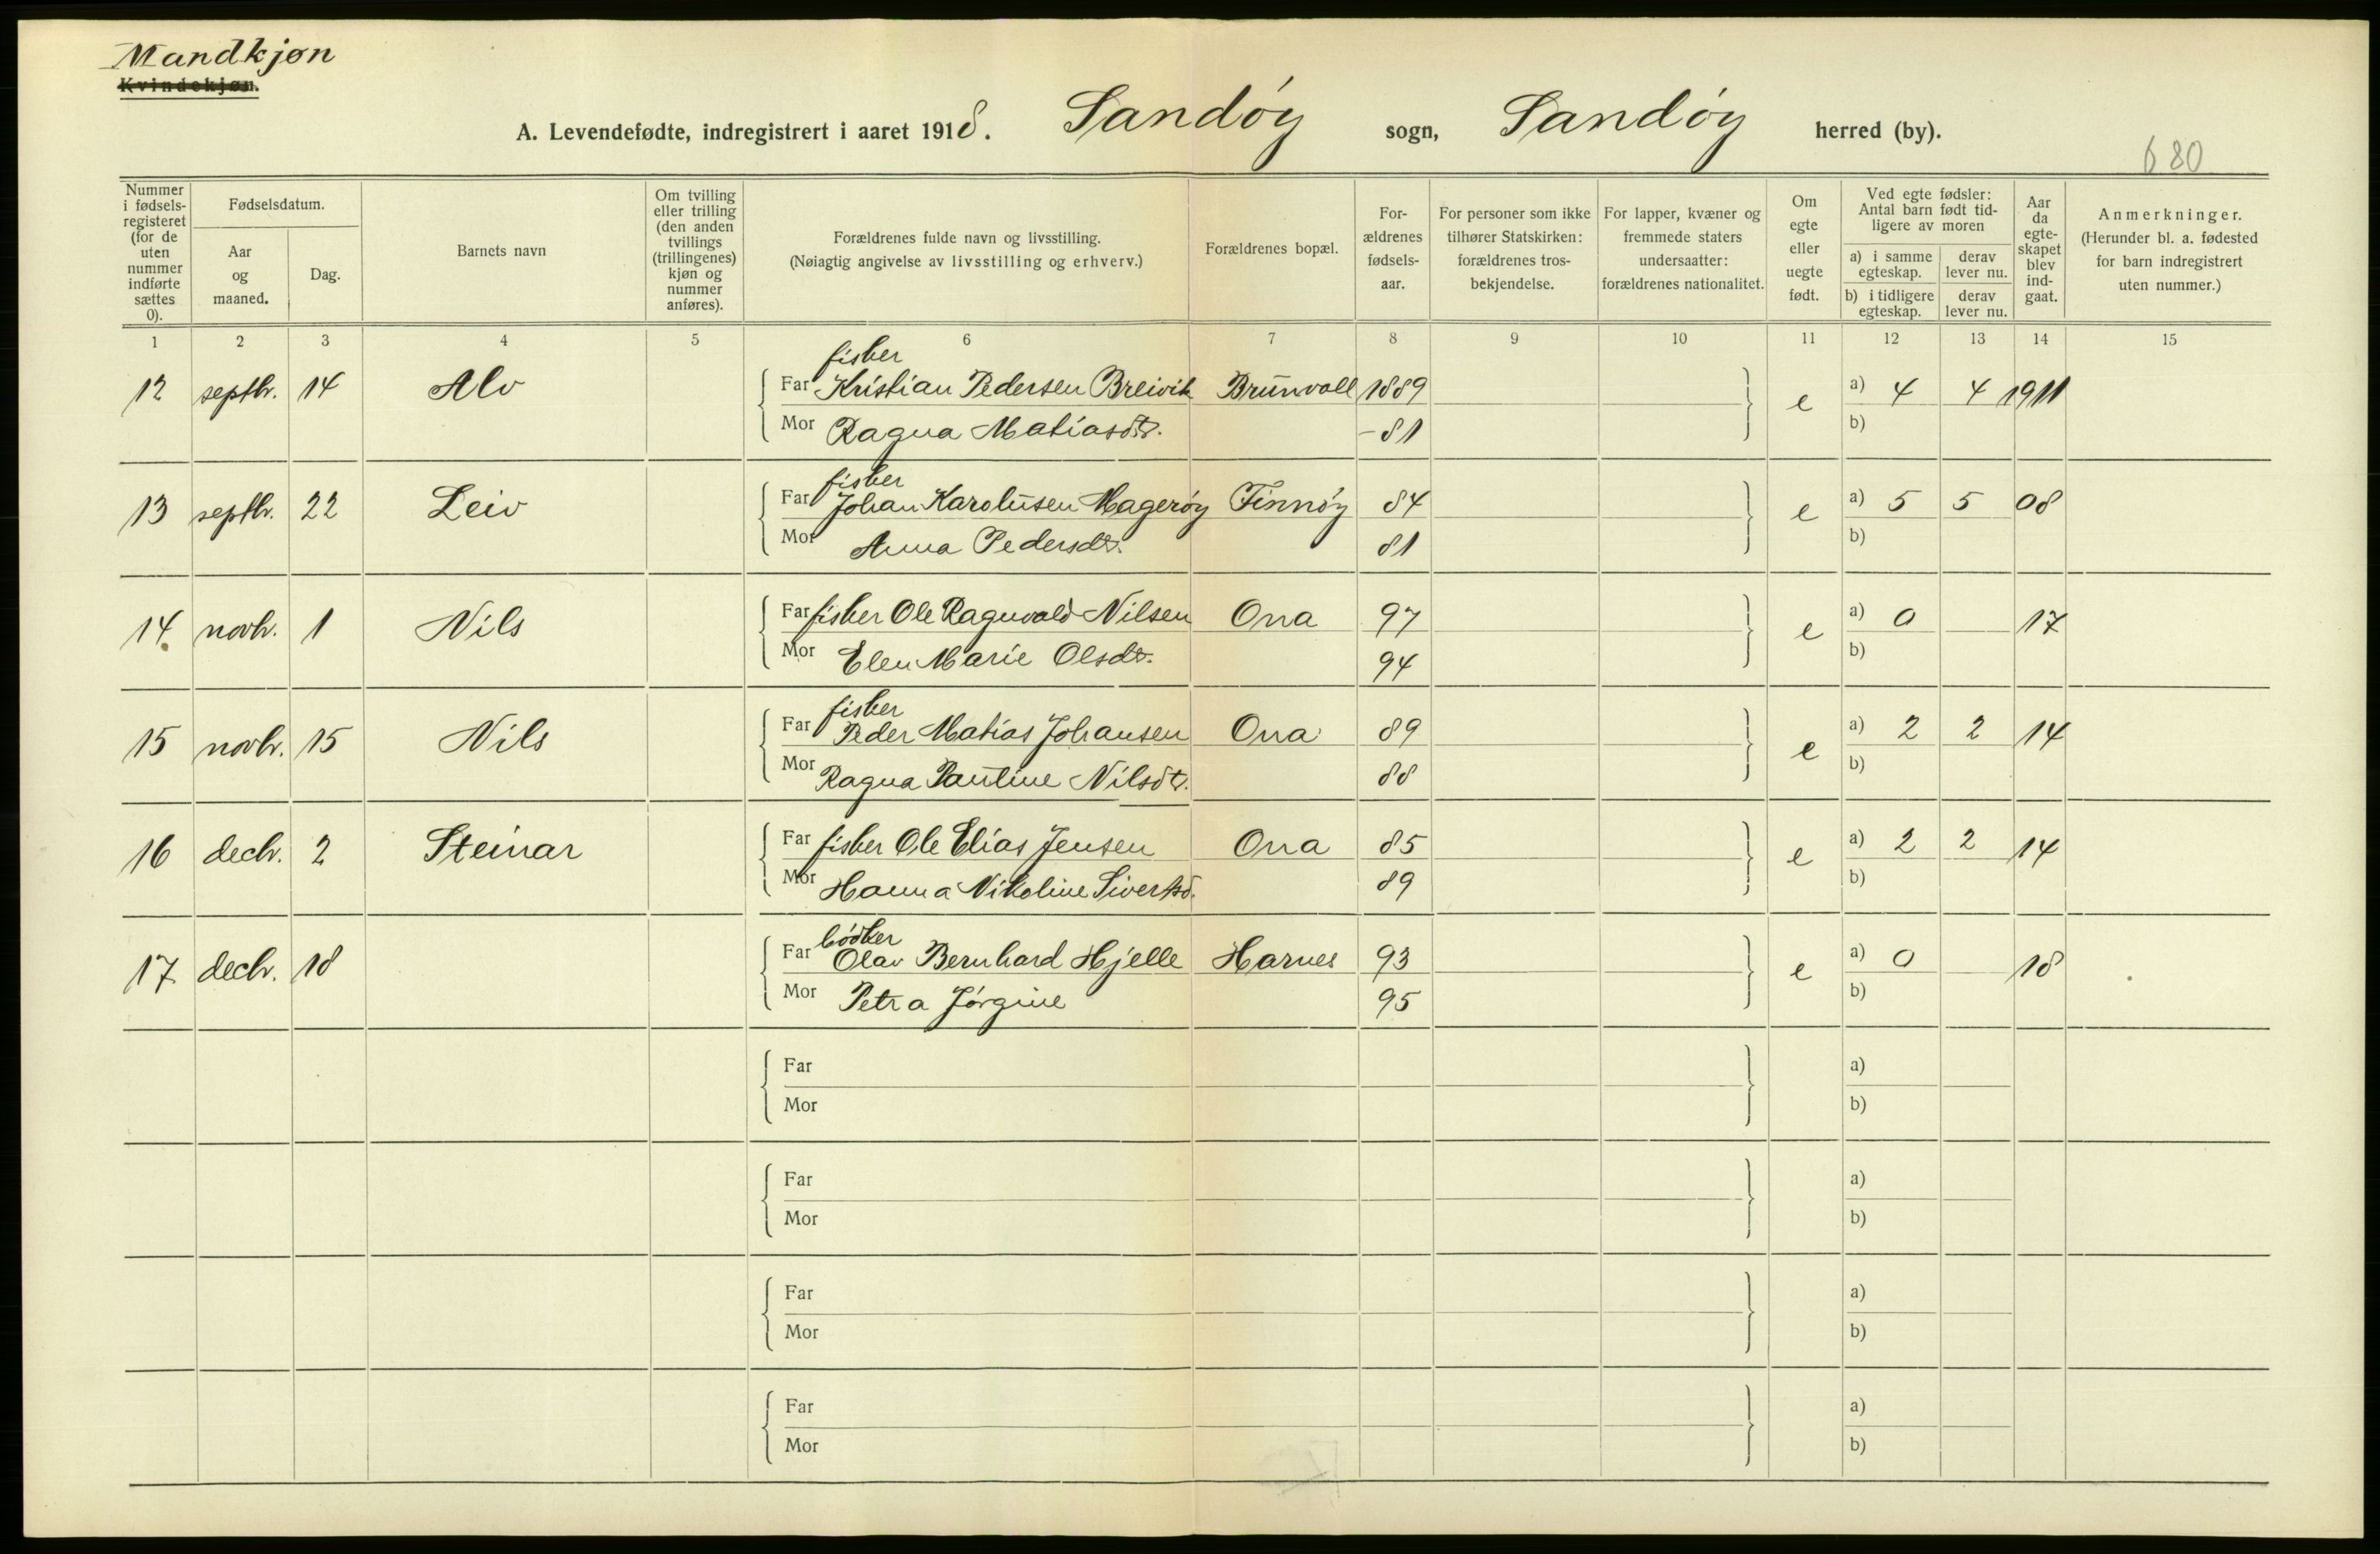 Mandkjøn
Kvindekjøn.
A. Levendefødte, indregistrert i aaret 1918. Sandøy sogn, Sandøy herred (by).
680
Nummer i fødsels-registeret (for de uten nummer indførte sættes 0).
Fødselsdatum.
Aar og maaned.
Dag.
Barnets navn
Om tvilling eller trilling (den anden tvillings (trillingenes) kjøn og nummer anføres).
Forældrenes fulde navn og livsstilling.
(Nøiagtig angivelse av livsstilling og erhverv.)
Forældrenes bopæl.
For-ældrenes fødsels-aar.
For personer som ikke tilhører Statskirken: forældrenes tros-bekjendelse.
For lapper, kvæner og fremmede staters undersaatter: forældrenes nationalitet.
Om egte eller uegte født.
Ved egte fødsler: Antal barn født tid-ligere av moren
a) i samme egteskap.
derav lever nu.
b) i tidligere egteskap.
derav lever nu.
Aar da egte-skapet blev ind-gaat.
Anmerkninger.
(Herunder bl. a. fødested for barn indregistrert uten nummer.)
1 2 3 4 5 6 7 8 9 10 11 12 13 14 15
fisker
12 septbr. 14 Alv Far Kristian Pedersen Breivik Brunvoll 1889 e a) 4 4 1911
Mor Ragna Matiasdtr. -81 b)
fisker
13 septbr. 22 Leiv Far Johan Karolusen Magerøy Finnøy 84 e a) 5 5 08
Mor Anna Pedersdr. 81 b)
14. novbr. 1 Nils Far fisker Ole Ragnvald Nilsen Ona 97 e a) 0 17
Mor Elen Marie Olsdr. 94 b)
fisker
15 novbr. 15 Nils Far Peder Matias Johansen Ona 89 e a) 2 2 14
Mor Ragna Pauline Nilsdtr. 88 b)
16 decbr. 2 Steinar Far fisker Ole Elias Jensen Ona 85 e a) 2 2 14
Mor Hanna Nikoline Sivertsd. 89 b)
bøдker
17 decbr. 18 Far Olav Bernhard Hjelle Harnes 93 e a) 0 18
Mor Petra Jørgine 95 b)
Far a)
Mor b)
Far a)
Mor b)
Far a)
Mor b)
Far a)
Mor b)